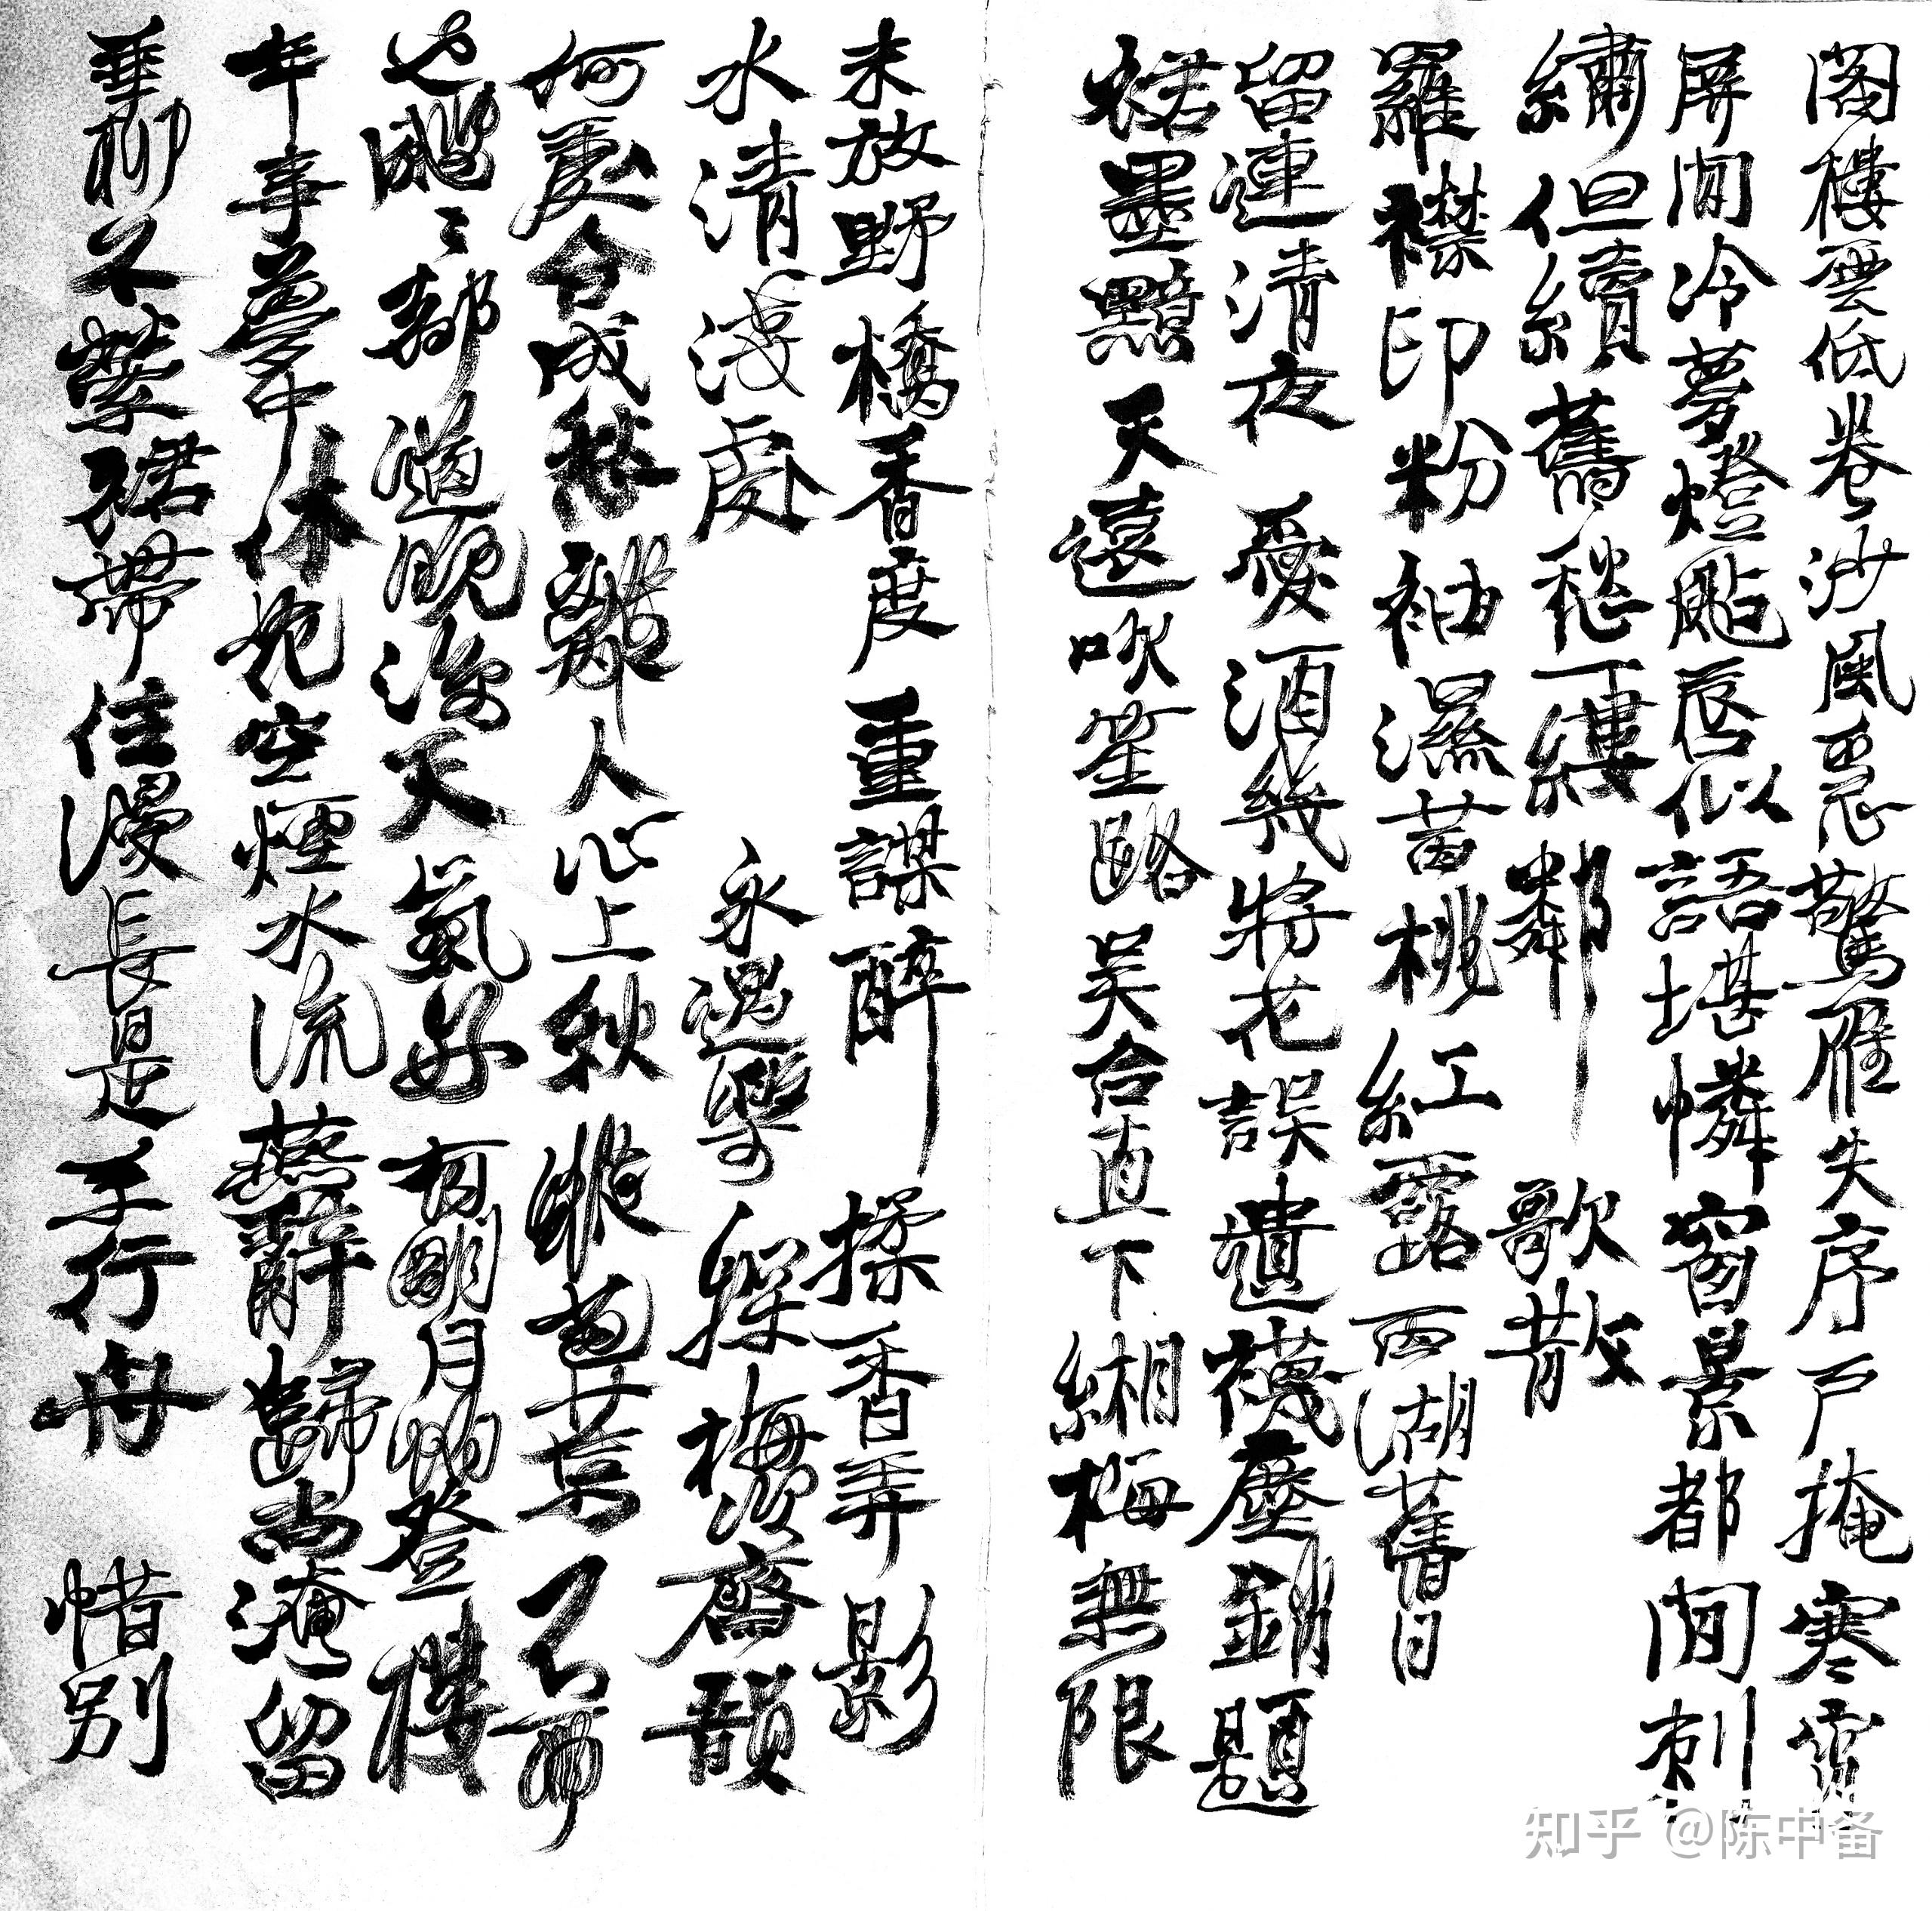 閣樓雲低卷沙風急驚雁失序戶掩寒霄
屏閒冷夢燈颭唇似語堪憐窗景都閒刺
繡但續舊愁一縷鄰 歌散
羅襟印粉袖濕茜桃紅露西湖舊日
留連清夜 愛酒幾將花誤遺襪塵銷題
裙墨黯天遠吹笙路吳台直下緗梅無限
未放野橋香度重謀醉 揉香弄影
水清淺處 永遇樂 探梅次齋韻
何處合成愁離人心上秋縱芭葉不雨
也颼〻都道晚涼天氣好有明月怕登樓
年事夢中休花空煙水流燕辭歸尚淹留
垂柳不縈裙帶住漫長是系行舟 惜別
知乎 @陈中备